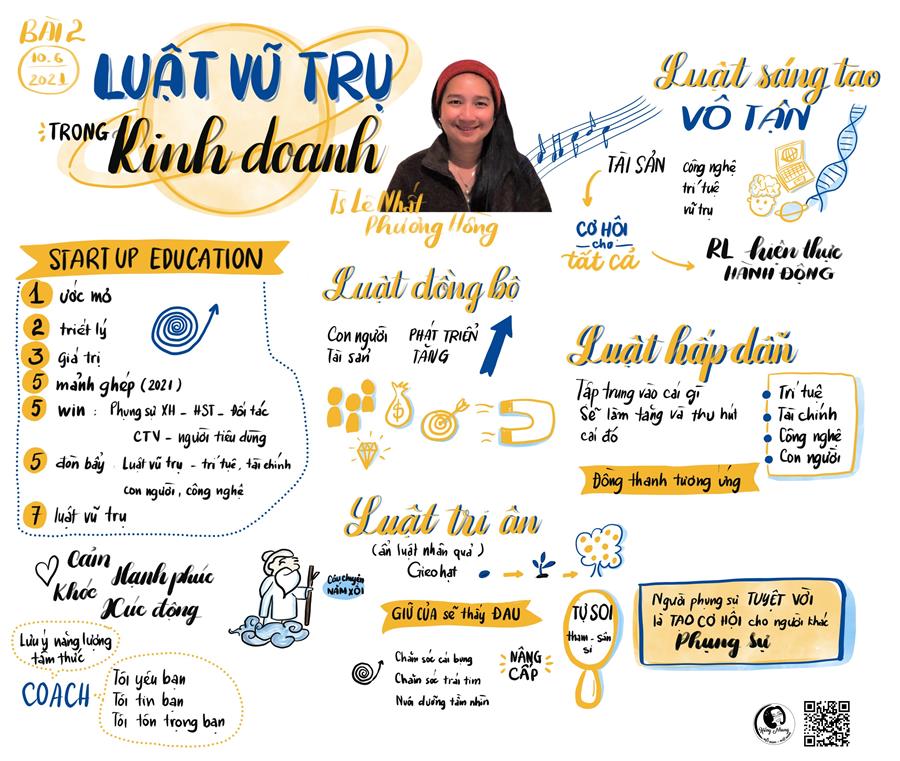 BÀI 2
10.6
2021
LUẬT VŨ TRỤ
TRONG Kinh doanh
Ts Lê Nhất
Phương Hồng
Luật sáng tạo
VÔ TẬN
TÀI SẢN
công nghệ
trí tuệ
vũ trụ
CƠ HỘI
cho
tất cả
RL hiện thực
HÀNH ĐỘNG
START UP EDUCATION
1 ước mơ
2 triết lý
3 giá trị
5 mảnh ghép (2021)
5 win : Phụng sự XH - HST - Đối tác
CTV - người tiêu dùng
5 đòn bẩy Luật vũ trụ - trí tuệ, tài chính
con người, công nghệ
7 luật vũ trụ
Luật đồng bộ
Con người
Tài sản
PHÁT TRIỂN
TĂNG
$
Luật hấp dẫn
Tập trung vào cái gì
Sẽ làm tăng và thu hút
cái đó
Trí tuệ
Tài chính
Công nghệ
Con người
Đồng thanh tương ứng
Luật tri ân
(ẩn luật nhân quả)
Gieo hạt
Câu chuyện
NẮM XÔI
GIỮ CỦA sẽ thấy ĐAU
Chăm sóc cái bụng
Chăm sóc trái tim
Nuôi dưỡng tầm nhìn
NÂNG
CẤP
TỰ SOI
tham - sân
si
Người phụng sự TUYỆT VỜI
là TẠO CƠ HỘI cho người khác
Phụng Sự
Cảm
Khóc
Hạnh phúc
Xúc động
Lưu ý năng lượng
tâm thức
COACH
Tôi yêu bạn
Tôi tin bạn
Tôi tôn trọng bạn